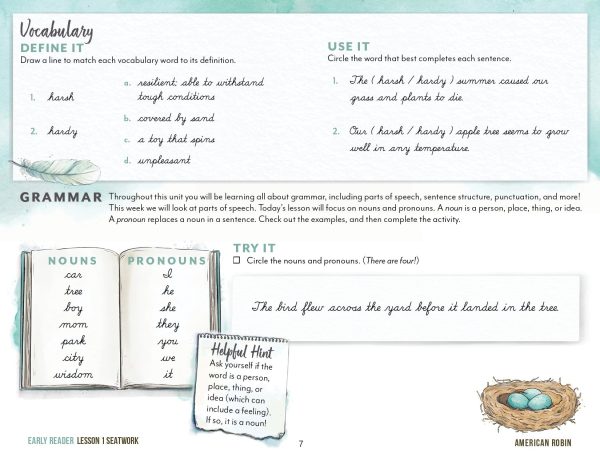 Vocabulary
DEFINE IT
Draw a line to match each vocabulary word to its definition.
1. harsh
2. hardy
a. resilient; able to withstand
tough conditions
b. covered by sand
c. a toy that spins
d. unpleasant
USE IT
Circle the word that best completes each sentence.
1. The ( harsh / hardy ) summer caused our
grass and plants to die.
2. Our ( harsh / hardy ) apple tree seems to grow
well in any temperature.
GRAMMAR
Throughout this unit you will be learning all about grammar, including parts of speech, sentence structure, punctuation, and more!
This week we will look at parts of speech. Today's lesson will focus on nouns and pronouns. A noun is a person, place, thing, or idea.
A pronoun replaces a noun in a sentence. Check out the examples, and then complete the activity.
NOUNS
car
tree
boy
mom
park
city
wisdom
PRONOUNS
I
he
she
they
you
we
it
TRY IT
☐ Circle the nouns and pronouns. (There are four!)
The bird flew across the yard before it landed in the tree.
Helpful Hint
Ask yourself if the
word is a person,
place, thing, or
idea (which can
include a feeling).
If so, it is a noun!
EARLY READER LESSON 1 SEATWORK
7
AMERICAN ROBIN